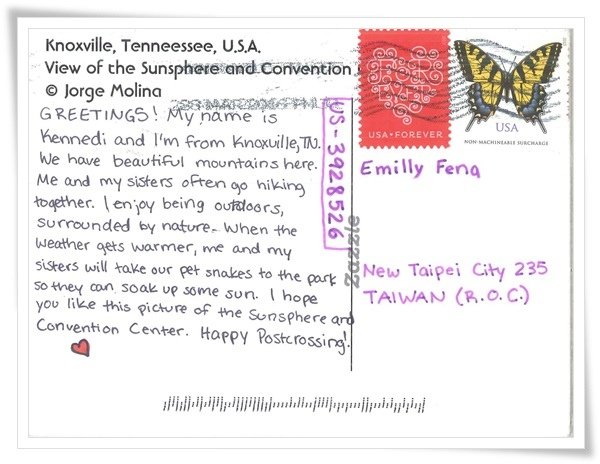 Knoxville, Tenneessee, U.S.A.
View of the Sunsphere and Convention
© Jorge Molina
GREETINGS! My name is
Kennedi and I'm from Knoxville, TN.
We have beautiful mountains here.
Me and my sisters often go hiking
together. I enjoy being outdoors,
surrounded by nature. When the
weather gets warmer, me and my
sisters will take our pet snakes to the park
so they can soak up some sun. I hope
you like this picture of the Sunsphere and
Convention Center. Happy Postcrossing!
US-3928526
Zazzle
USA FOREVER
USA
NON-MACHINEABLE SURCHARGE
Emilly Feng
New Taipei City 235
TAIWAN (R.O.C.)